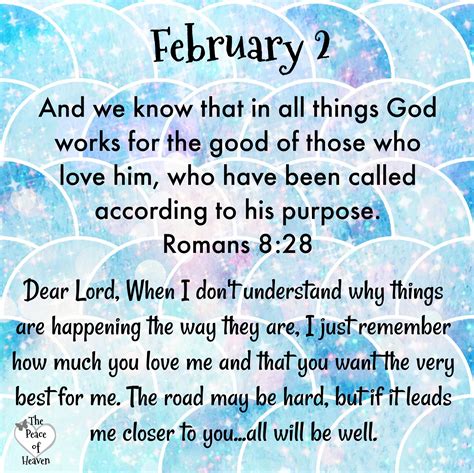 February 2
And we know that in all things God
works for the good of those who
love him, who have been called
according to his purpose.
Romans 8:28
Dear Lord, When I don't understand why things
are happening the way they are, I just remember
how much you love me and that you want the very
best for me. The road may be hard, but if it leads
me closer to you...all will be well.
The
Peace
of
Heaven